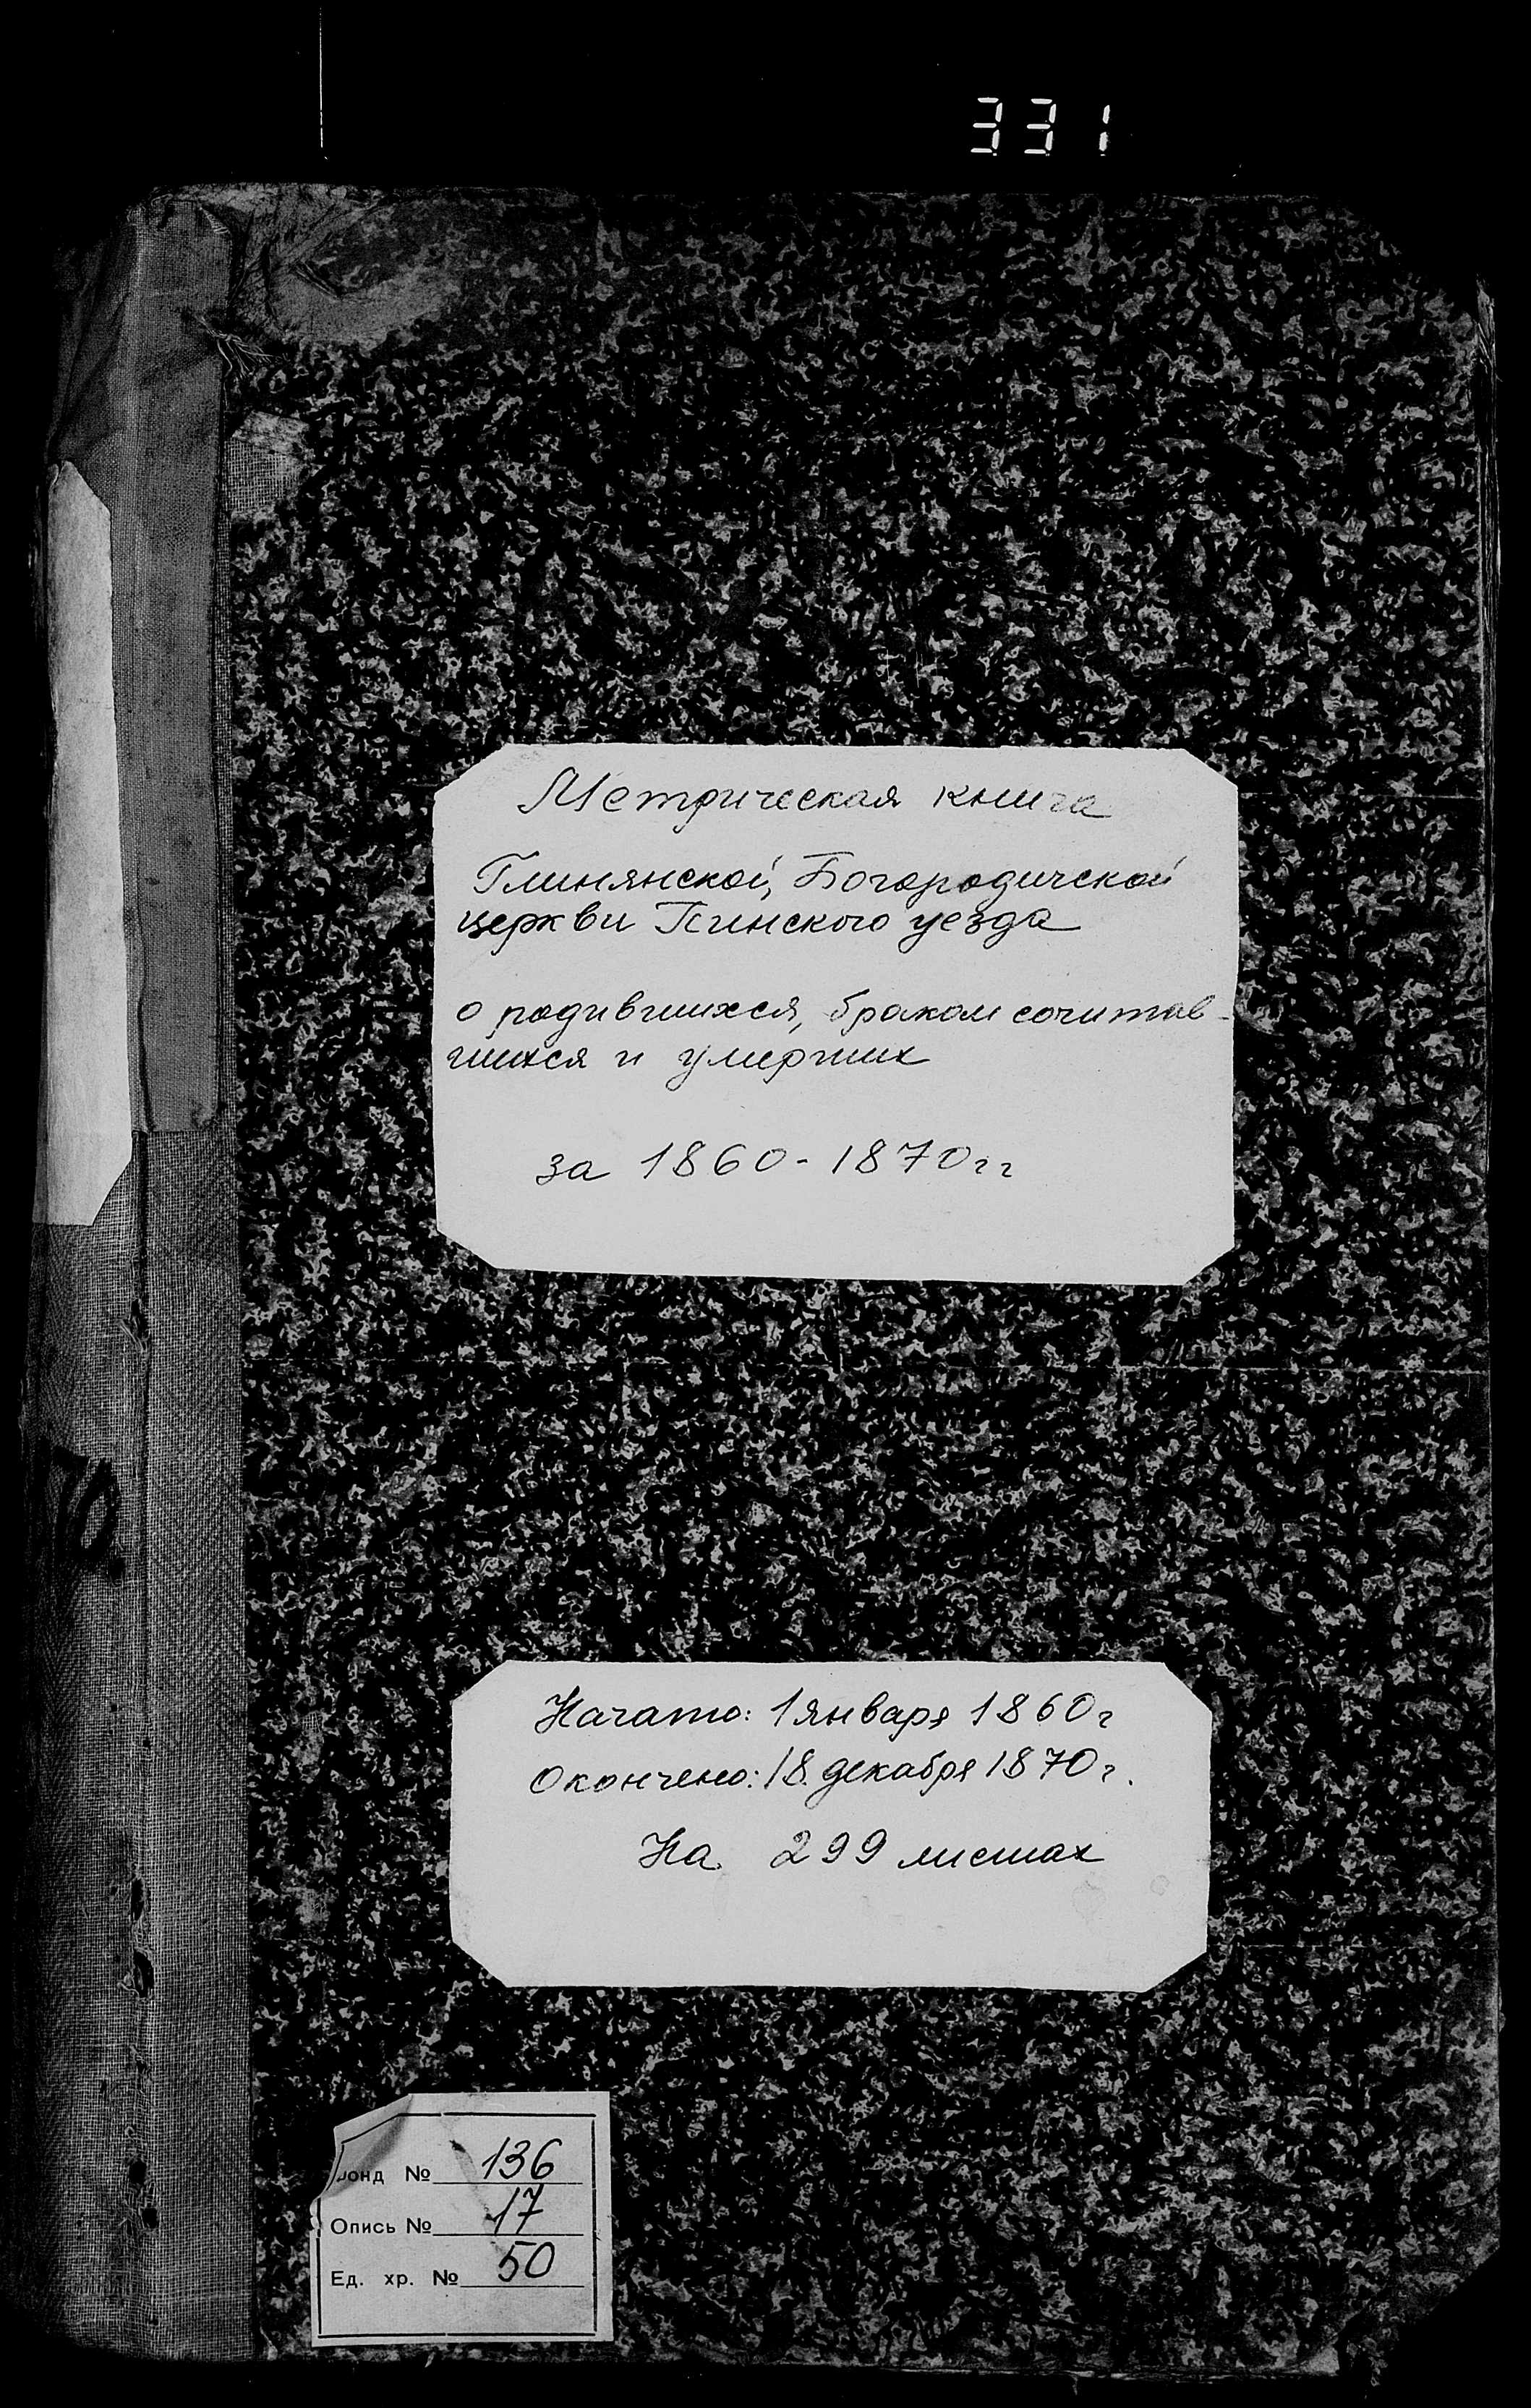 331
Метрическая книга
Глинянской, Богородичской
церкви Пинского уезда
о родившихся, браком сочитав-
шихся и умерших
за 1860-1870гг
Начато: 1 января 1860г
Окончено: 18 декабря 1870г.
На 299 листах
фонд № 136
Опись № 17
Ед. хр. № 50